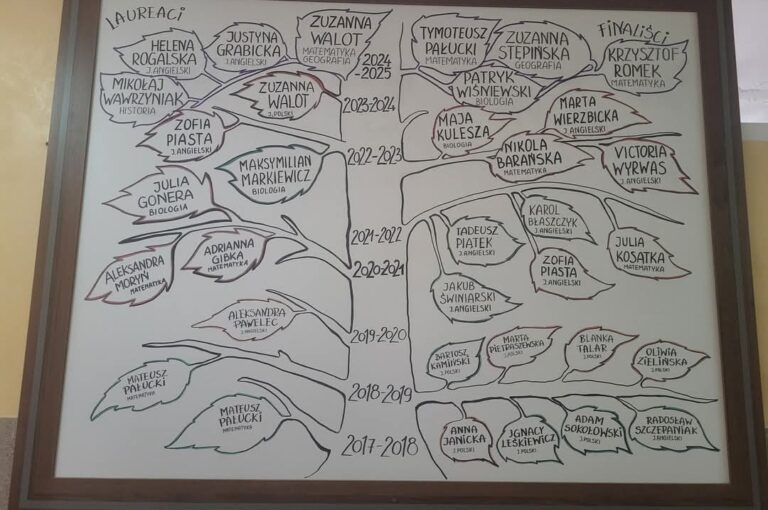 LAUREACI
FINALIŚCI
HELENA
ROGALSKA
J.ANGIELSKI
JUSTYNA
GRABICKA
J.ANGIELSKI
ZUZANNA
WALOT
MATEMATYKA
GEOGRAFIA
MIKOŁAJ
WAWRZYNIAK
HISTORIA
2024
-2025
TYMOTEUSZ
PAŁUCKI
MATEMATYKA
ZUZANNA
STĘPIŃSKA
GEOGRAFIA
KRZYSZTOF
ROMEK
MATEMATYKA
PATRYK
WIŚNIEWSKI
BIOLOGIA
ZUZANNA
WALOT
J.POLSKI
ZOFIA
PIASTA
J.ANGIELSKI
2023-2024
MAJA
KULESZA
BIOLOGIA
MARTA
WIERZBICKA
J.ANGIELSKI
JULIA
GONERA
BIOLOGIA
MAKSYMILIAN
MARKIEWICZ
BIOLOGIA
2022-2023
NIKOLA
BARAŃSKA
MATEMATYKA
VICTORIA
WYRWAS
J.ANGIELSKI
ALEKSANDRA
MORYŃ
MATEMATYKA
ADRIANNA
GIBKA
MATEMATYKA
2021-2022
2020-2021
TADEUSZ
PIĄTEK
J.ANGIELSKI
KAROL
BŁASZCZYK
J.ANGIELSKI
JAKUB
ŚWINIARSKI
J.ANGIELSKI
ZOFIA
PIASTA
J.ANGIELSKI
JULIA
KOSATKA
MATEMATYKA
ALEKSANDRA
PAWELEC
J.ANGIELSKI
2019-2020
BARTOSZ
KAMIŃSKI
J.POLSKI
MARTA
PIETRASZEWSKA
J.POLSKI
BLANKA
TALAR
J.POLSKI
OLIWIA
ZIELIŃSKA
J.POLSKI
MATEUSZ
PAŁUCKI
MATEMATYKA
2018-2019
ANNA
JANICKA
J.POLSKI
IGNACY
LEŚKIEWICZ
J.POLSKI
ADAM
SOKOŁOWSKI
J.POLSKI
RADOSŁAW
SZCZEPANIAK
J.ANGIELSKI
MATEUSZ
PAŁUCKI
MATEMATYKA
2017-2018